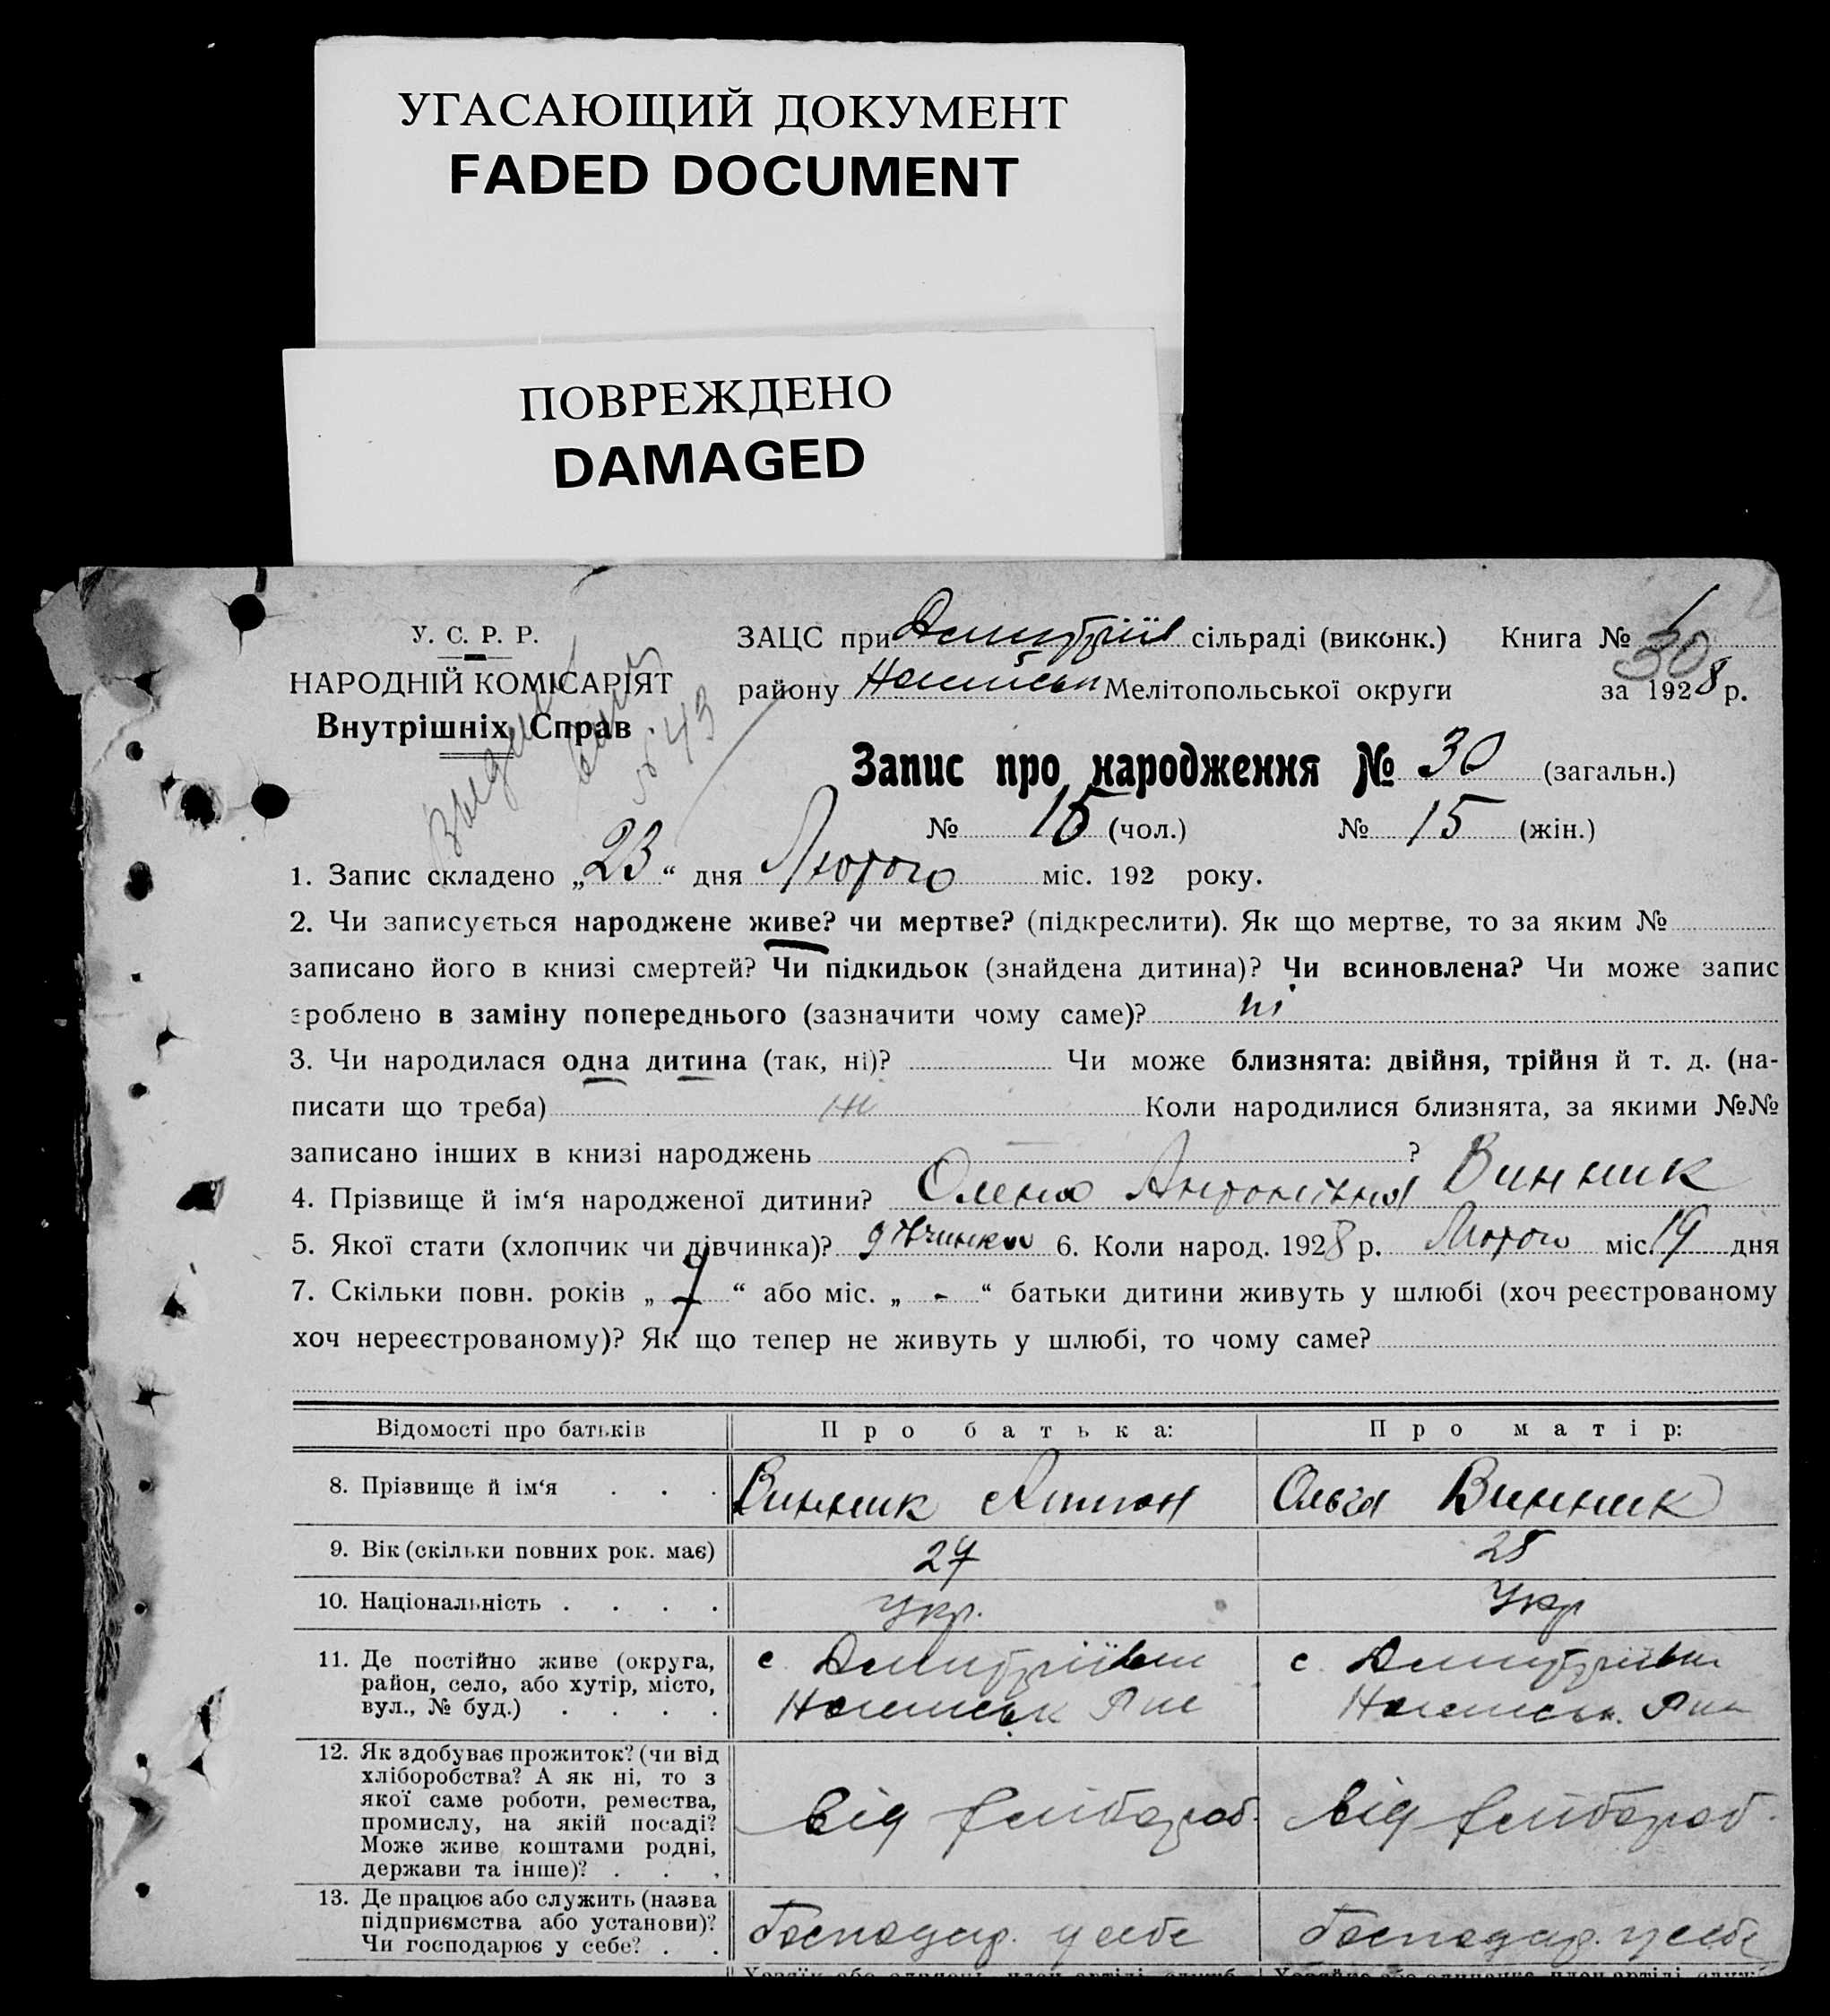 УГАСАЮЩИЙ ДОКУМЕНТ
FADED DOCUMENT
ПОВРЕЖДЕНО
DAMAGED
У. С. Р. Р.
НАРОДНІЙ КОМІСАРІЯТ
Внутрішніх Справ
№ 43
ЗАЦС при Дмитріїв сільраді (виконк.) Книга № 1
30
району Мелітопольської округи за 1928 р.
Запис про народження № 30 (загальн.)
№ 15 (чол.) № 15 (жін.)
1. Запис складено „23“ дня Лютого міс. 192 року.
2. Чи записується народжене живе? чи мертве? (підкреслити). Як що мертве, то за яким №
записано його в книзі смертей? Чи підкидьок (знайдена дитина)? Чи всиновлена? Чи може запис
зроблено в заміну попереднього (зазначити чому саме)? ні
3. Чи народилася одна дитина (так, ні)? Чи може близнята: двійня, трійня й т. д. (на-
писати що треба) Коли народилися близнята, за якими №№
записано інших в книзі народжень ?
4. Прізвище й ім‘я народженої дитини? Олена Антонівна Винник
5. Якої стати (хлопчик чи дівчинка)? дівчинка 6. Коли народ. 1928 р. Лютого міс. 19 дня
7. Скільки повн. років „7“ або міс. „-“ батьки дитини живуть у шлюбі (хоч реєстрованому
хоч нереєстрованому)? Як що тепер не живуть у шлюбі, то чому саме?
Відомості про батьків Про батька: Про матір:
8. Прізвище й ім‘я . . . Винник Антон Ольга Винник
9. Вік (скільки повних рок. має) 27 28
10. Національність . . . . Укр. Укр
11. Де постійно живе (округа,
район, село, або хутір, місто,
вул., № буд.) . . . .
с. Дмитріївки
с. Дмитріївки
12. Як здобуває прожиток? (чи від
хліборобства? А як ні, то з
якої саме роботи, ремества,
промислу, на якій посаді?
Може живе коштами родні,
держави та інше)? . . .
від хлібороб. від хлібороб.
13. Де працює або служить (назва
підприємства або установи)?
Чи господарює у себе? . .
Господар. у себе Господар. у себе